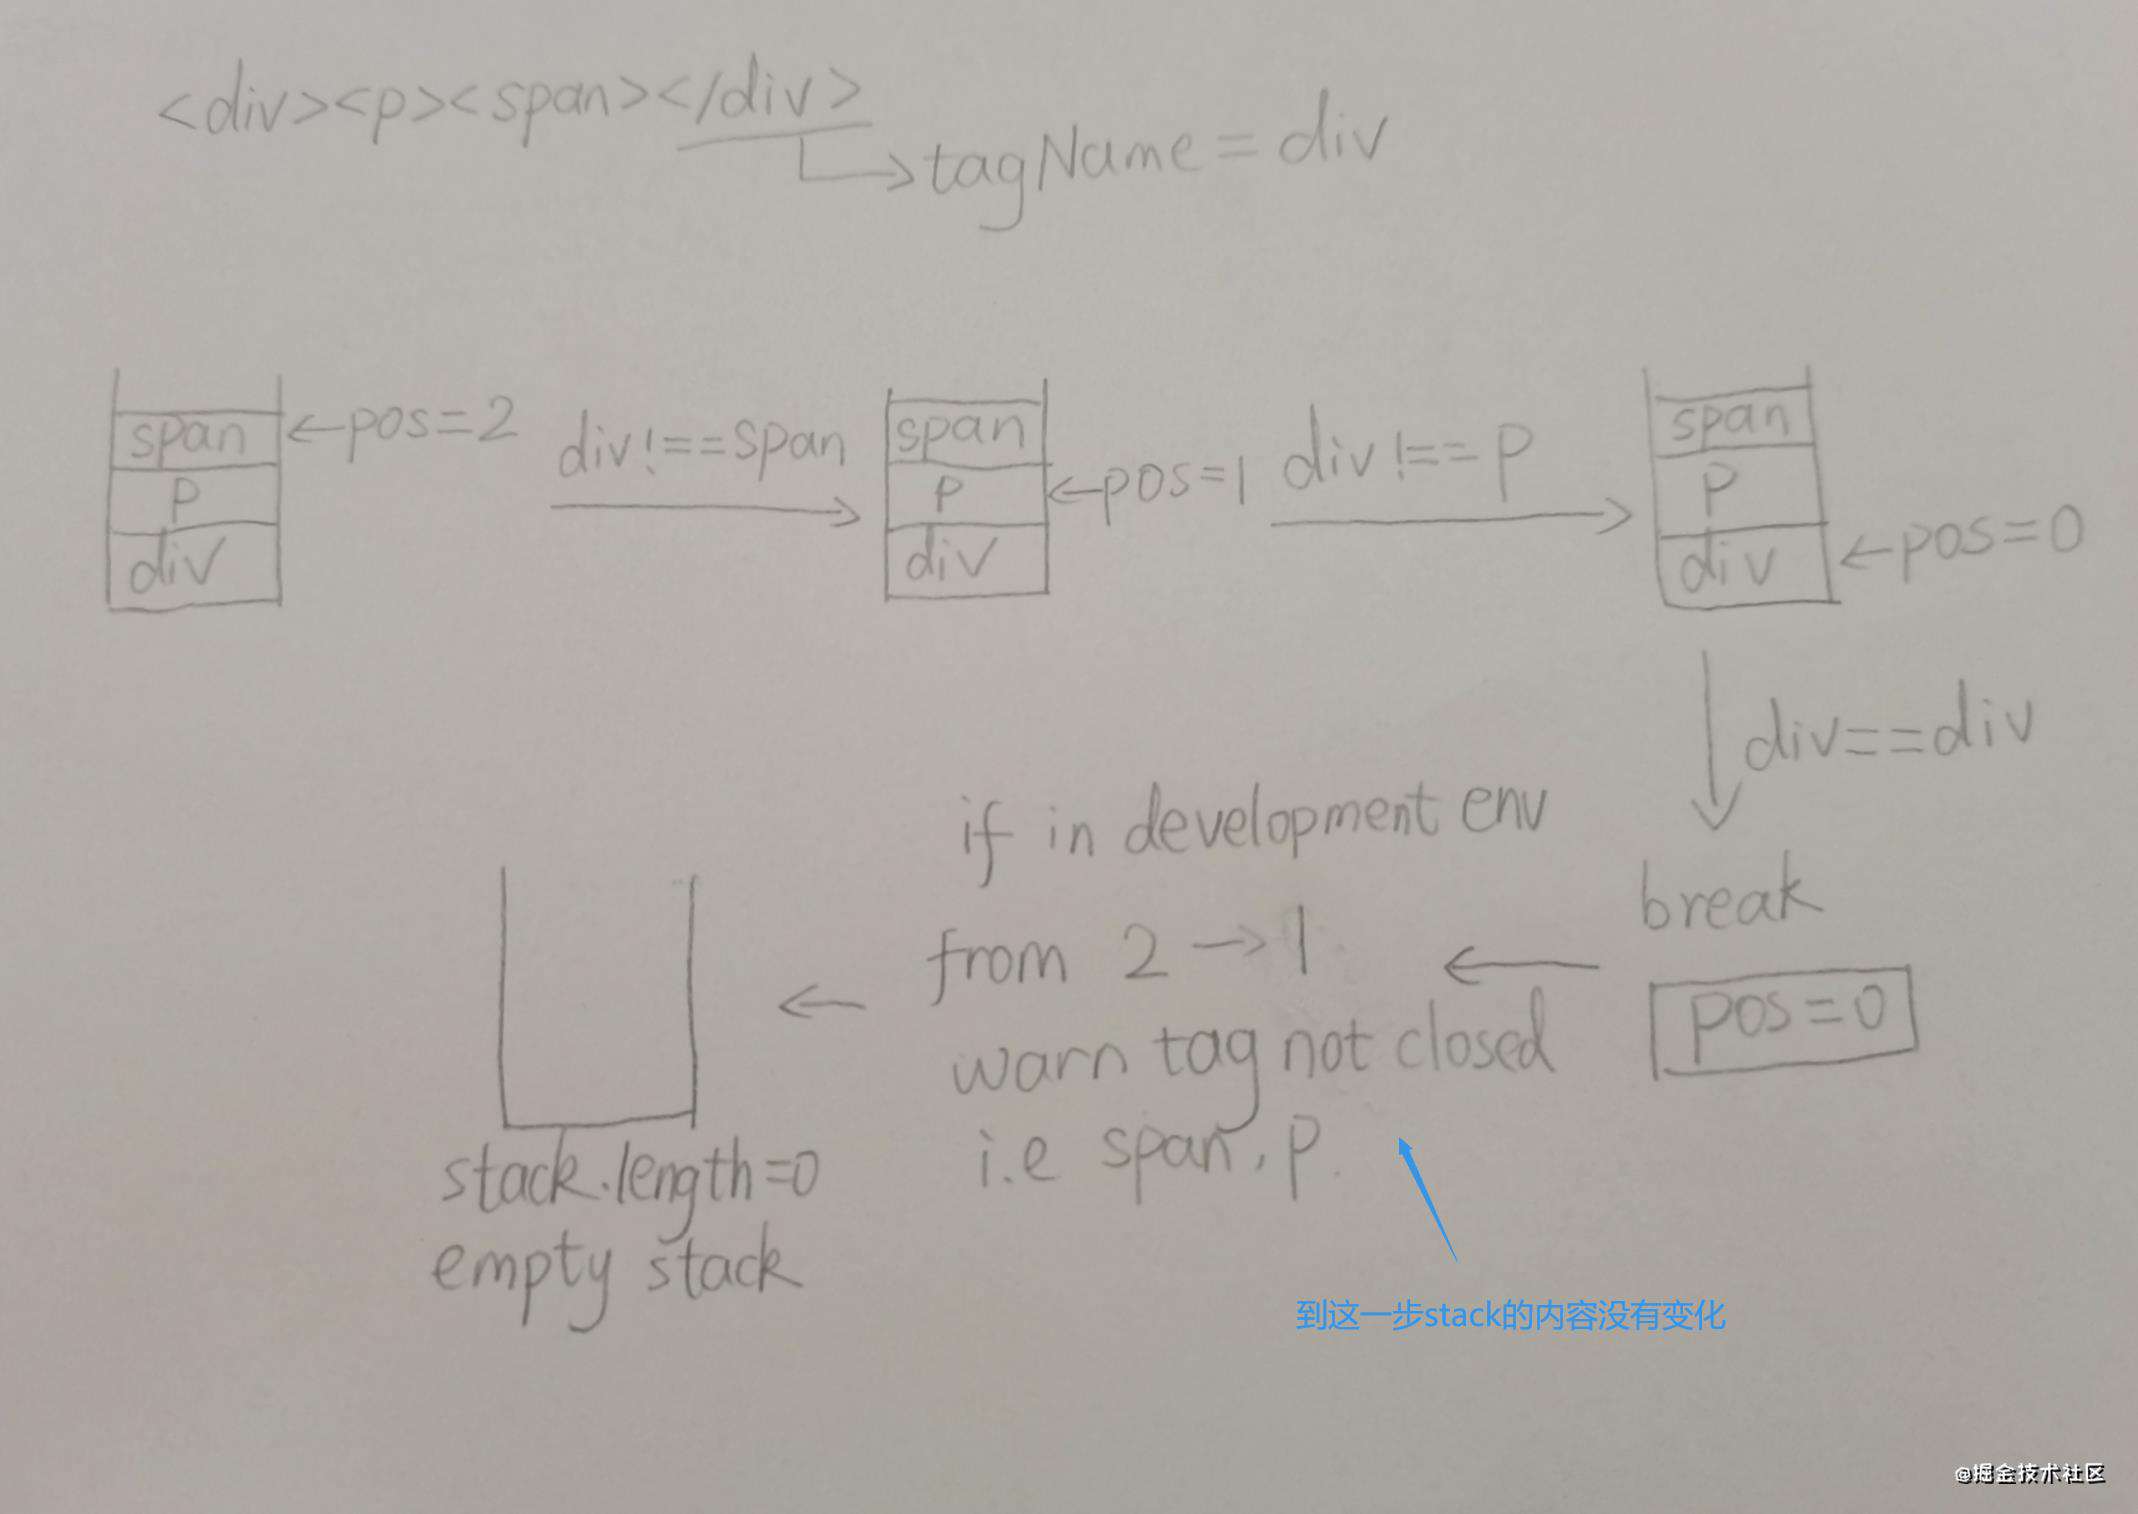 <div><p><span></div>
tagName = div
span
p
div
←pos=2
div!==span
span
p
div
←pos=1
div!==p
span
p
div
←pos=0
div==div
break
pos=0
if in development env
from 2→1
warn tag not closed
i.e span, p.
到这一步stack的内容没有变化
stack.length=0
empty stack
@掘金技术社区